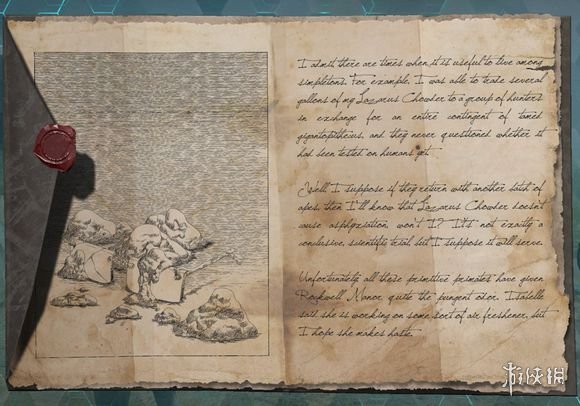 I admit there are times when it is useful to live among
simpletons. For example, I was able to trade several
gallons of my Lazarus Chowder to a group of hunters
in exchange for an entire contingent of tamed
gigantopithecus, and they never questioned whether it
had been tested on humans yet.
Well I suppose if they return with another batch of
apes, then I'll know that Lazarus Chowder doesn't
cause asphyxiation won't I? It's not exactly a
conclusive, scientific trial, but I suppose it will serve.
Unfortunately all these primitive primates have given
Rockwell Manor quite the pungent odor. Isabelle
said she is working on some sort of air freshener, but
I hope she makes haste.
游侠网